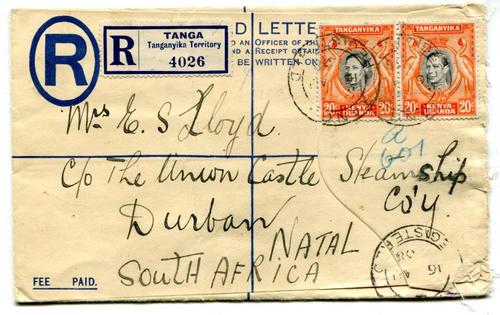 D LETTE
TO AN OFFICER OF TH
ND A RECEIPT OBTAI
BE WRITTEN ON
R
R
TANGA
Tanganyika Territory
4026
TANGANYIKA
20c
KENYA
UGANDA
20c
TANGANYIKA
20c
KENYA
UGANDA
20c
Mrs E. S Lloyd.
a
601
c/o The Union Castle Steamship
Co'y
Durban
NATAL
SOUTH AFRICA
GISTERED
FEE PAID.